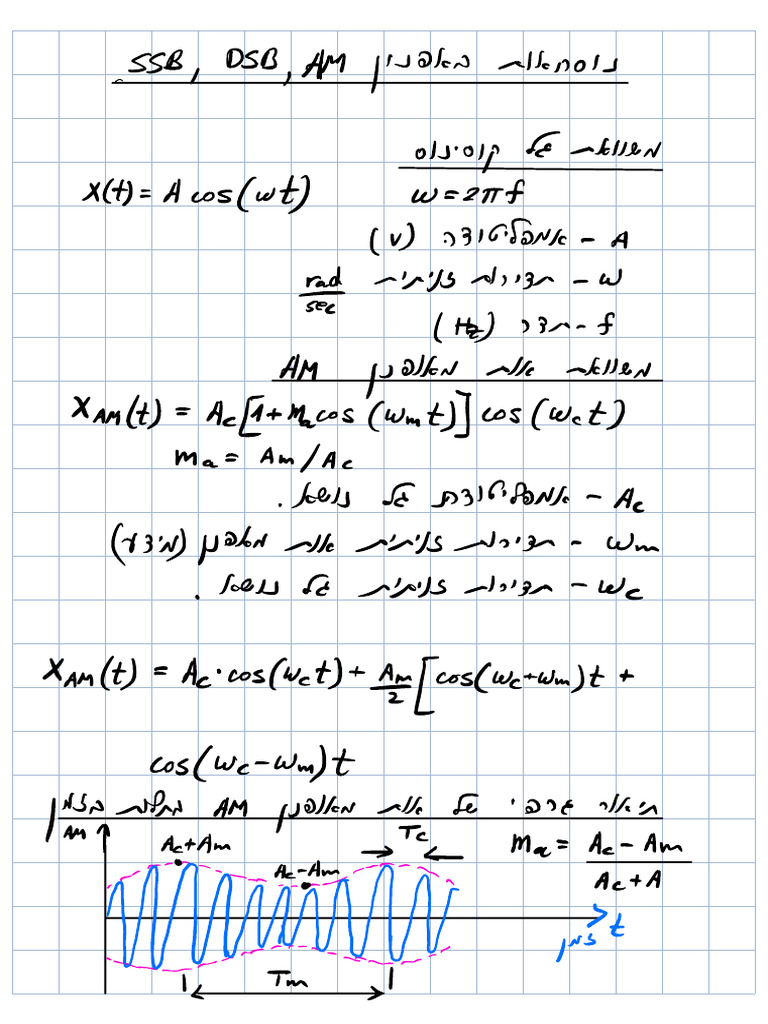 נוסחאות באפנון SSB, DSB, AM
משוואת גל קוסינוס
X(t) = A cos(ωt)
ω = 2πf
A - אמפליטודה (V)
ω - תדירות זויתית rad/sec
f - תדר (Hz)
משוואת אות מאופנן AM
X_AM(t) = Ac[1 + ma cos(ωm t)] cos(ωc t)
ma = Am/Ac
Ac - אמפליטודת גל נושא.
ωm - תדירות זויתית אות מאפנן (מידע)
ωc - תדירות זויתית גל נושא.
X_AM(t) = Ac · cos(ωc t) + Am/2 [cos(ωc + ωm)t +
cos(ωc - ωm)t
תיאור גרפי של אות מאופנן AM בזמן
AM
Ac + Am
Ac - Am
Tc
ma = (Ac - Am)/(Ac + A)
t
זמן
Tm